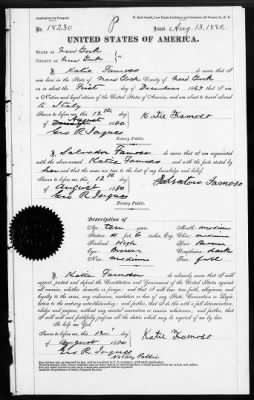 Application for Passport.
No 18230
Issued Aug. 13, 1880.
UNITED STATES OF AMERICA.
STATE OF New York
COUNTY OF New York
I, Katie Famoso do swear that I was
born in the State of New York County of New York
on the First day of December 1869 that I am a
Native and loyal citizen of the United States of America, and am about to travel abroad
to Italy
Sworn to before me this 12th day
of August 1880
Katie Framoso
Geo R Jaques
Notary Public.
I, Salvador Famoso do swear that I am acquainted with
the aforenamed Katie Famoso and with the facts stated by
her and that the same are true to the best of my knowledge and belief.
Sworn to before me this 12th day
of August 1880
Salvatore Famoso
Geo R Jaques
Notary Public.
Description of
Age: Ten years
Mouth: medium
Stature: 4 feet inches, Eng.
Chin: medium
Forehead: High
Hair: Brown
Eyes: Brown
Complexion: dark
Nose: medium
Face: full
I, Katie Famoso do solemnly swear that I will
support, protect and defend the Constitution and Government of the United States against
all enemies, whether domestic or foreign; and that I will bear true faith, allegiance, and
loyalty to the same, any ordinance, resolution or law of any State, Convention or Legis-
lature to the contrary notwithstanding; and further, that I do this with a full determination,
pledge and purpose, without any mental reservation or evasion whatsoever; and further, that
I will well and faithfully perform all the duties which may be required of me by law.
Sworn to before me this 12th day
of August 1880
Katie Framoso
Geo R Jaques
Notary Public